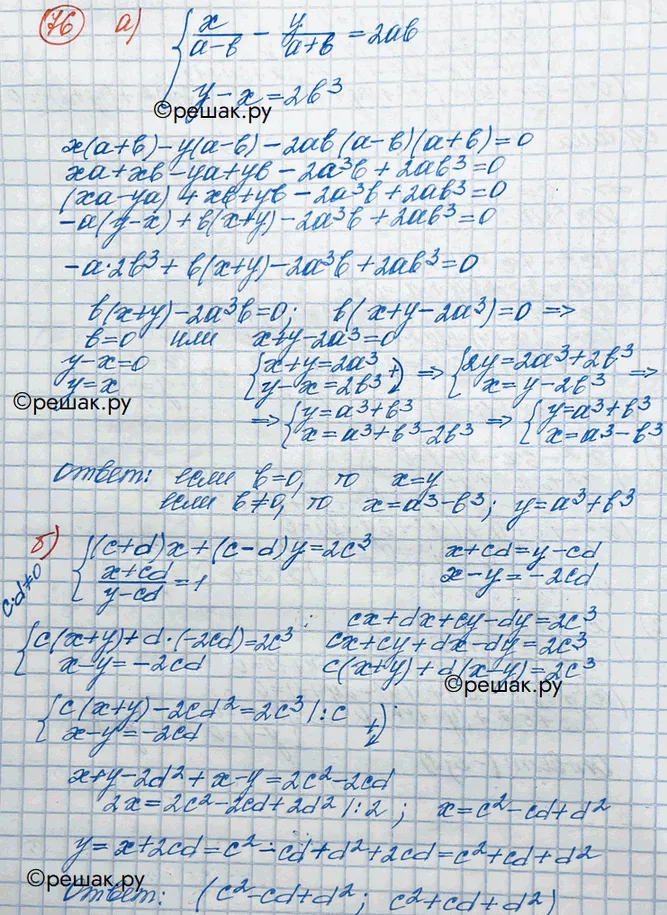 76 а) { x/(a-b) - y/(a+b) = 2ab
y - x = 2b³
©решак.ру
x(a+b) - y(a-b) - 2ab(a-b)(a+b) = 0
xa + xb - ya + yb - 2a³b + 2ab³ = 0
(xa - ya) + xb + yb - 2a³b + 2ab³ = 0
-a(y-x) + b(x+y) - 2a³b + 2ab³ = 0
-a·2b³ + b(x+y) - 2a³b + 2ab³ = 0
b(x+y) - 2a³b = 0; b(x+y-2a³) = 0 =>
b=0 или x+y-2a³=0
y-x=0 { x+y=2a³ + => { 2y=2a³+2b³ =>
y=x y-x=2b³ x=y-2b³
©решак.ру
=> { y=a³+b³ => { y=a³+b³
x=a³+b³-2b³ x=a³-b³
Ответ: если b=0, то x=y
если b≠0, то x=a³-b³; y=a³+b³
б) { (c+d)x + (c-d)y = 2c³ x+cd=y-cd
(x+cd)/(y-cd) = 1 x-y=-2cd
c·d≠0
cx+dx+cy-dy=2c³
{ c(x+y)+d·(-2cd)=2c³ cx+cy+dx-dy=2c³
x-y=-2cd c(x+y)+d(x-y)=2c³
©решак.ру
{ c(x+y)-2cd²=2c³ |:c
x-y=-2cd +
x+y-2d²+x-y=2c²-2cd
2x=2c²-2cd+2d² |:2; x=c²-cd+d²
y=x+2cd=c²-cd+d²+2cd=c²+cd+d²
©решак.ру
Ответ: (c²-cd+d²; c²+cd+d²)